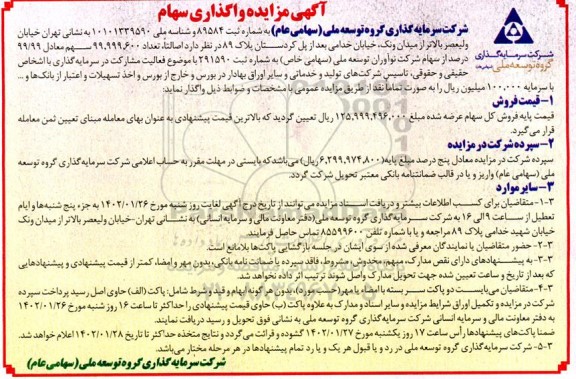 آگهی مزایده واگذاری سهام
شرکت سرمایه گذاری گروه توسعه ملی (سهامی عام) به شماره ثبت ۸۹۵۸۴ و شناسه ملی ۱۰۱۰۱۳۳۹۵۹۰ به نشانی تهران خیابان
ولیعصر بالاتر از میدان ونک، خیابان خدامی بعد از پل کردستان پلاک ۸۹ در نظر دارد اصالتا، تعداد ۹۹,۹۹۹,۶۰۰ سهم معادل ۹۹/۹۹
درصد از سهام شرکت نوآوران توسعه ملی (سهامی خاص) به شماره ثبت ۲۹۱۵۹۰ با موضوع فعالیت مشارکت در سرمایه گذاری با اشخاص
حقیقی و حقوقی، تاسیس شرکت های تولید و خدماتی و سایر اوراق بهادار در بورس و خارج از بورس و اخذ تسهیلات و اعتبار از بانک ها و ...
با سرمایه ۱۰۰,۰۰۰ میلیون ریال را به صورت تماما نقد از طریق مزایده عمومی با مشخصات و ضوابط ذیل واگذار نماید:
شرکت سرمایه گذاری
گروه توسعه ملی
۱- قیمت فروش
قیمت پایه فروش کل سهام عرضه شده مبلغ ۱۲۵,۹۹۹,۴۹۶,۰۰۰ ریال تعیین گردید که بالاترین قیمت پیشنهادی به عنوان بهای معامله مبنای تعیین ثمن معامله
قرار می گیرد.
۲- سپرده شرکت در مزایده
سپرده شرکت در مزایده معادل پنج درصد مبلغ پایه (۶,۲۹۹,۹۷۴,۸۰۰ ریال) می باشد که بایستی در مهلت مقرر به حساب اعلامی شرکت سرمایه گذاری گروه توسعه
ملی (سهامی عام) واریز و یا در قالب ضمانتنامه بانکی معتبر تحویل شرکت گردد.
۳- سایر موارد
۳-۱- متقاضیان برای کسب اطلاعات بیشتر و دریافت اسناد مزایده می توانند از تاریخ درج آگهی لغایت روز شنبه مورخ ۱۴۰۲/۰۱/۲۶ به جزء پنج شنبه ها و ایام
تعطیل از ساعت ۹ الی ۱۶ به شرکت سرمایه گذاری گروه توسعه ملی (دفتر معاونت مالی و سرمایه انسانی) به نشانی تهران -خیابان ولیعصر بالاتر از میدان ونک
خیابان شهید خدامی پلاک ۸۹ مراجعه و یا با شماره تلفن ۸۵۵۹۹۶۰۰ تماس حاصل فرمایند.
۳-۲- حضور متقاضیان یا نمایندگان معرفی شده از سوی ایشان در جلسه بازگشایی پاکت ها بلامانع است.
۳-۳- به پیشنهادهای دارای نقص مدارک، مبهم، مخدوش، مشروط، فاقد سپرده یا ضمانت نامه بانکی، بدون مهر و امضا، کمتر از قیمت پیشنهادی و پیشنهادهایی
که بعد از تاریخ و ساعت تعیین شده جهت تحویل مدارک واصل شوند ترتیب اثر داده نخواهد شد.
۳-۴- متقاضیان می بایست دو پاکت سربسته با امضاء یا مهر (حسب مورد) بدون هرگونه ابهام و قید و شرط شامل: پاکت (الف) حاوی اصل رسید پرداخت سپرده
شرکت در مزایده و تکمیل اوراق شرایط مزایده و سایر اسناد و مدارک به علاوه پاکت (ب) حاوی قیمت پیشنهادی را حداکثر تا ساعت ۱۶ روز شنبه مورخ ۱۴۰۲/۰۱/۲۶
به دفتر معاونت مالی و سرمایه انسانی شرکت سرمایه گذاری گروه توسعه ملی به نشانی فوق تحویل و رسید دریافت نمایند.
ضمنا پاکت های پیشنهادها رأس ساعت ۱۷ روز یکشنبه مورخ ۱۴۰۲/۰۱/۲۷ گشوده و قرائت می گردد و نتایج متخذه حداکثر تا تاریخ ۱۴۰۲/۰۱/۲۸ اعلام خواهد شد.
۳-۵- شرکت سرمایه گذاری گروه توسعه ملی در رد و یا قبول هر یک و یا رد تمام پیشنهادها در هر مرحله مختار می باشد.
شرکت سرمایه گذاری گروه توسعه ملی (سهامی عام)